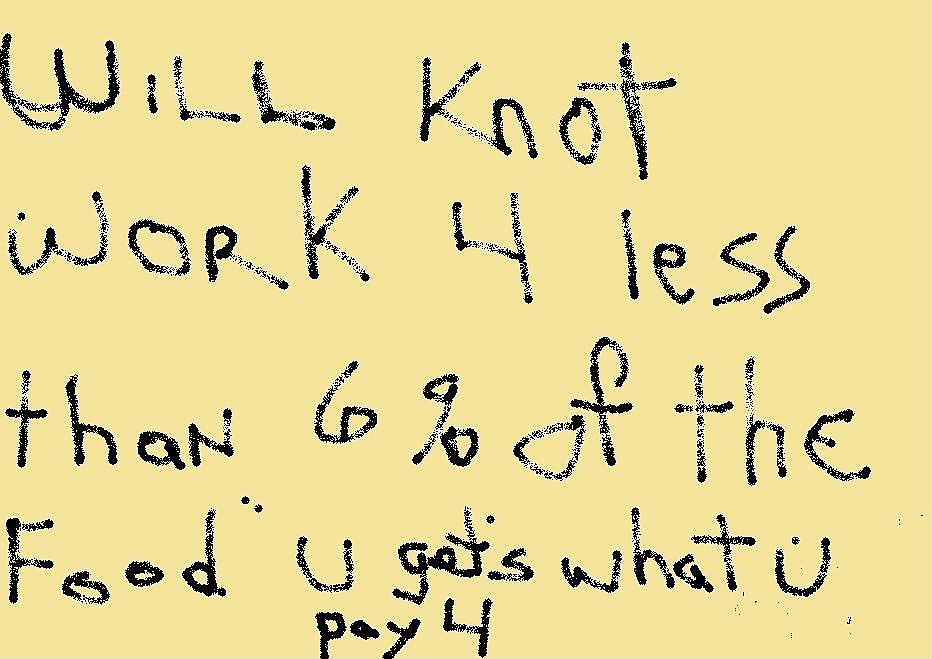 WiLL Knot
WORK 4 less
than 6% of the
Food U gets what U
pay 4